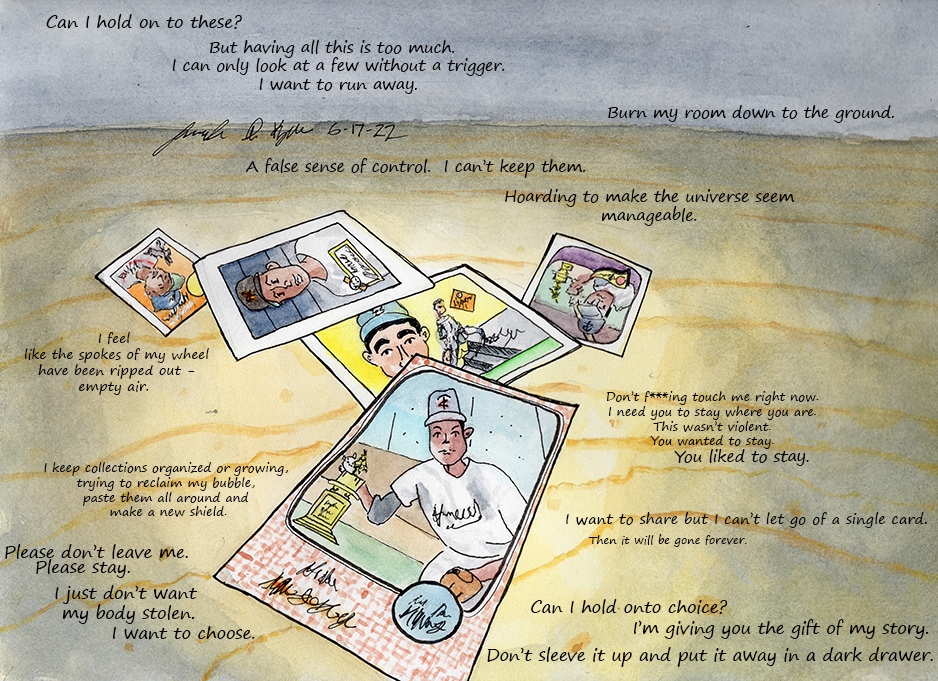 Can I hold on to these?
But having all this is too much.
I can only look at a few without a trigger.
I want to run away.
Burn my room down to the ground.
6-17-22
A false sense of control.  I can't keep them.
Hoarding to make the universe seem
manageable.
I feel
like the spokes of my wheel
have been ripped out -
empty air.
Don't f***ing touch me right now.
I need you to stay where you are.
This wasn't violent.
You wanted to stay.
You liked to stay.
I keep collections organized or growing,
trying to reclaim my bubble,
paste them all around and
make a new shield.
I want to share but I can't let go of a single card.
Then it will be gone forever.
Please don't leave me.
Please stay.
I just don't want
my body stolen.
I want to choose.
Can I hold onto choice?
I'm giving you the gift of my story.
Don't sleeve it up and put it away in a dark drawer.